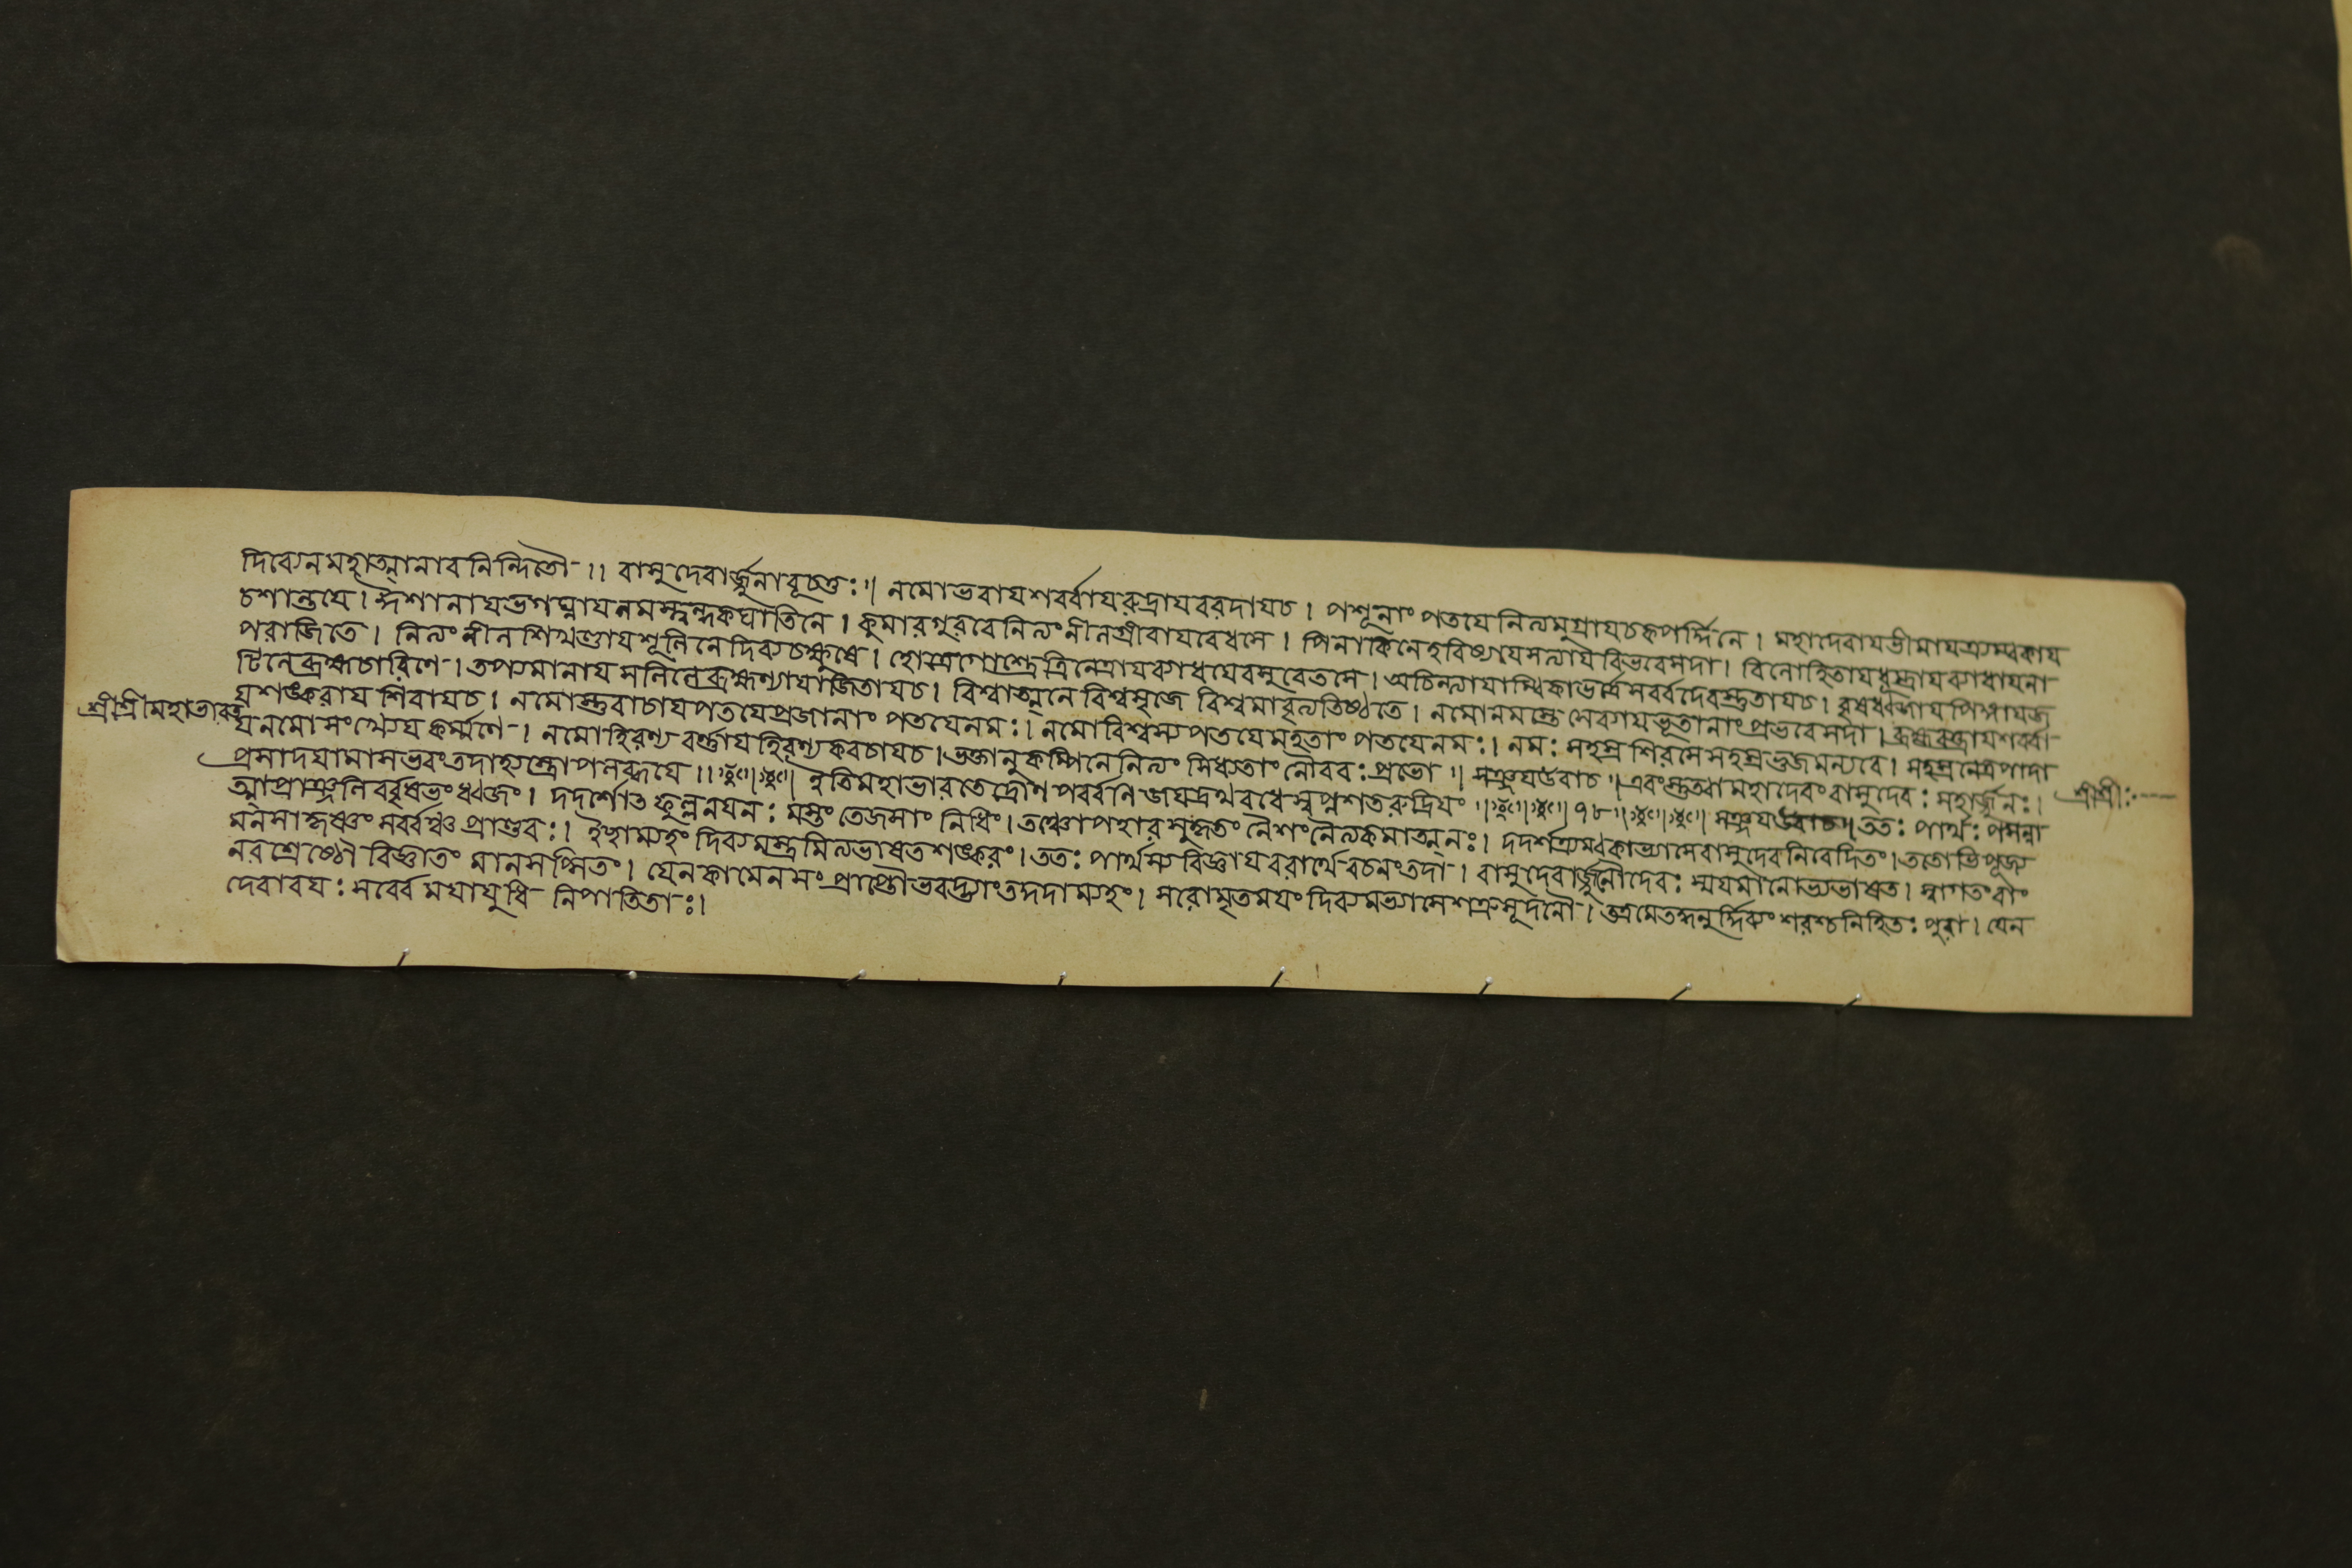 দিব্যেনমহাত্মানাবনিন্দিতৌ ।। বাসুদেবার্জ্জুনাবূচতুঃ ॥ নমোভবাযশর্ব্বাযরুদ্রাযবরদাযচ । পশূনাং পতযেনিত্যমুগ্রাযচকপর্দ্দিনে । মহাদেবাযভীমাযত্র্যম্বকায
চশান্তযে । ঈশানাযভগঘ্নাযনমস্ত্বন্ধকঘাতিনে । কুমারগুরবেনিত্যংনীলগ্রীবাযবেধসে । পিনাকিনেহবিষ্যাযসত্যাযবিভবেসদা । বিলোহিতাযধূম্রাযব্যাধাযনা
পরাজিতে । নিত্যংনীলশিখণ্ডাযশূলিনেদিব্যচক্ষুষে । হোত্রেপোত্রেত্রিনেত্রাযব্যাধযেবসুরেতসে । অচিন্ত্যাযাম্বিকাভর্ত্রেসর্ব্বদেবস্তুতাযচ । বৃষধ্বজাযপিঙ্গাযজ
টিনেব্রহ্মচারিণে । তপ্যমানাযসলিলেব্রহ্মণ্যাযাজিতাযচ । বিশ্বাত্মনেবিশ্বসৃজে বিশ্বমাবৃত্যতিষ্ঠতে । নমোনমস্তে সেব্যাযভূতানাংপ্রভবেসদা । ব্রহ্মবক্ত্রাযশর্ব্বা
শ্রীশ্রীমহাভারত
যশঙ্করায শিবাযচ । নমোস্তুবাচাযপতযেপ্রজানাং পতযেনমঃ । নমোবিশ্বস্যপতযেমহতাং পতযেনমঃ । নমঃ সহস্রশিরসেসহস্রভুজমন্যবে । সহস্রনেত্রপাদা
যনমোসংখ্যেযকর্ম্মণে । নমোহিরণ্যবর্ণ্ণাযহিরণ্যকবচাযচ । ভক্তানুকম্পিনেনিত্যং সিধ্যতাং নৌবরঃ প্রভো ॥ সঞ্জযউবাচ ॥ এবংস্তুত্বামহাদেবংবাসুদেবঃ সহার্জ্জুনঃ । শ্রীশ্রীঃ
প্রসাদযামাসভবংতদাহ্যস্ত্রোপলব্ধযে ।। ইতিমহাভারতেদ্রোণপর্ব্বণিজযদ্রথবধেস্বপ্নশতরুদ্রিযং ॥ ৭৮ ॥ সঞ্জযউবাচ ॥ ততঃ পার্থঃ প্রসন্না
ত্মাপ্রাঞ্জলির্ব্বৃষভংধ্বজং । দদর্শোত্ফুল্লনযনঃ সমস্তং তেজসাং নিধিং । তঞ্চোপহারংসুকৃতং নৈশংনৈত্যকমাত্মনঃ । দদর্শত্র্যম্বকাভ্যাসেবাসুদেবনিবেদিতং । ততোভিপূজ্য
মনসাকৃষ্ণং সর্ব্বঞ্চ প্রাণ্ডবঃ । ইচ্ছাম্যহং দিব্যমস্ত্রমিত্যভাষতশঙ্করং । ততঃ পার্থস্যবিজ্ঞাযবরার্থে বচনংতদা । বাসুদেবার্জ্জুনৌদেবঃ স্মযমানোভ্যভাষত । স্বাগতংবাং
নরশ্রেষ্ঠৌ বিজ্ঞাতং মানসেপ্সিতং । যেনকামেনসং প্রাপ্তৌভবদ্ভ্যাংতদদাম্যহং । সরোমৃতমযং দিব্যমভ্যাসেশত্রুসূদনৌ । তত্রমেতদ্ধনুর্দ্দিব্যং শরশ্চনিহিতঃ পুরা । যেন
দেবাবযঃ সর্ব্বে মযাযুধি নিপাতিতাঃ ।